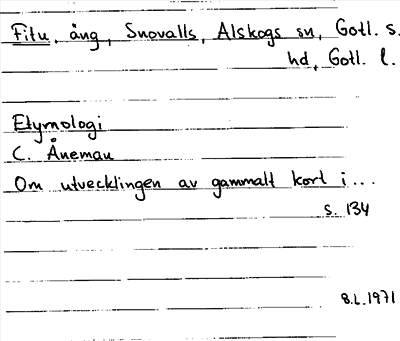 Fitu, äng, Snovalls, Alskogs sn, Gotl. s.
hd, Gotl. l.
Etymologi
C. Åneman
Om utvecklingen av gammalt kort i...
s. 134
B.L. 1971